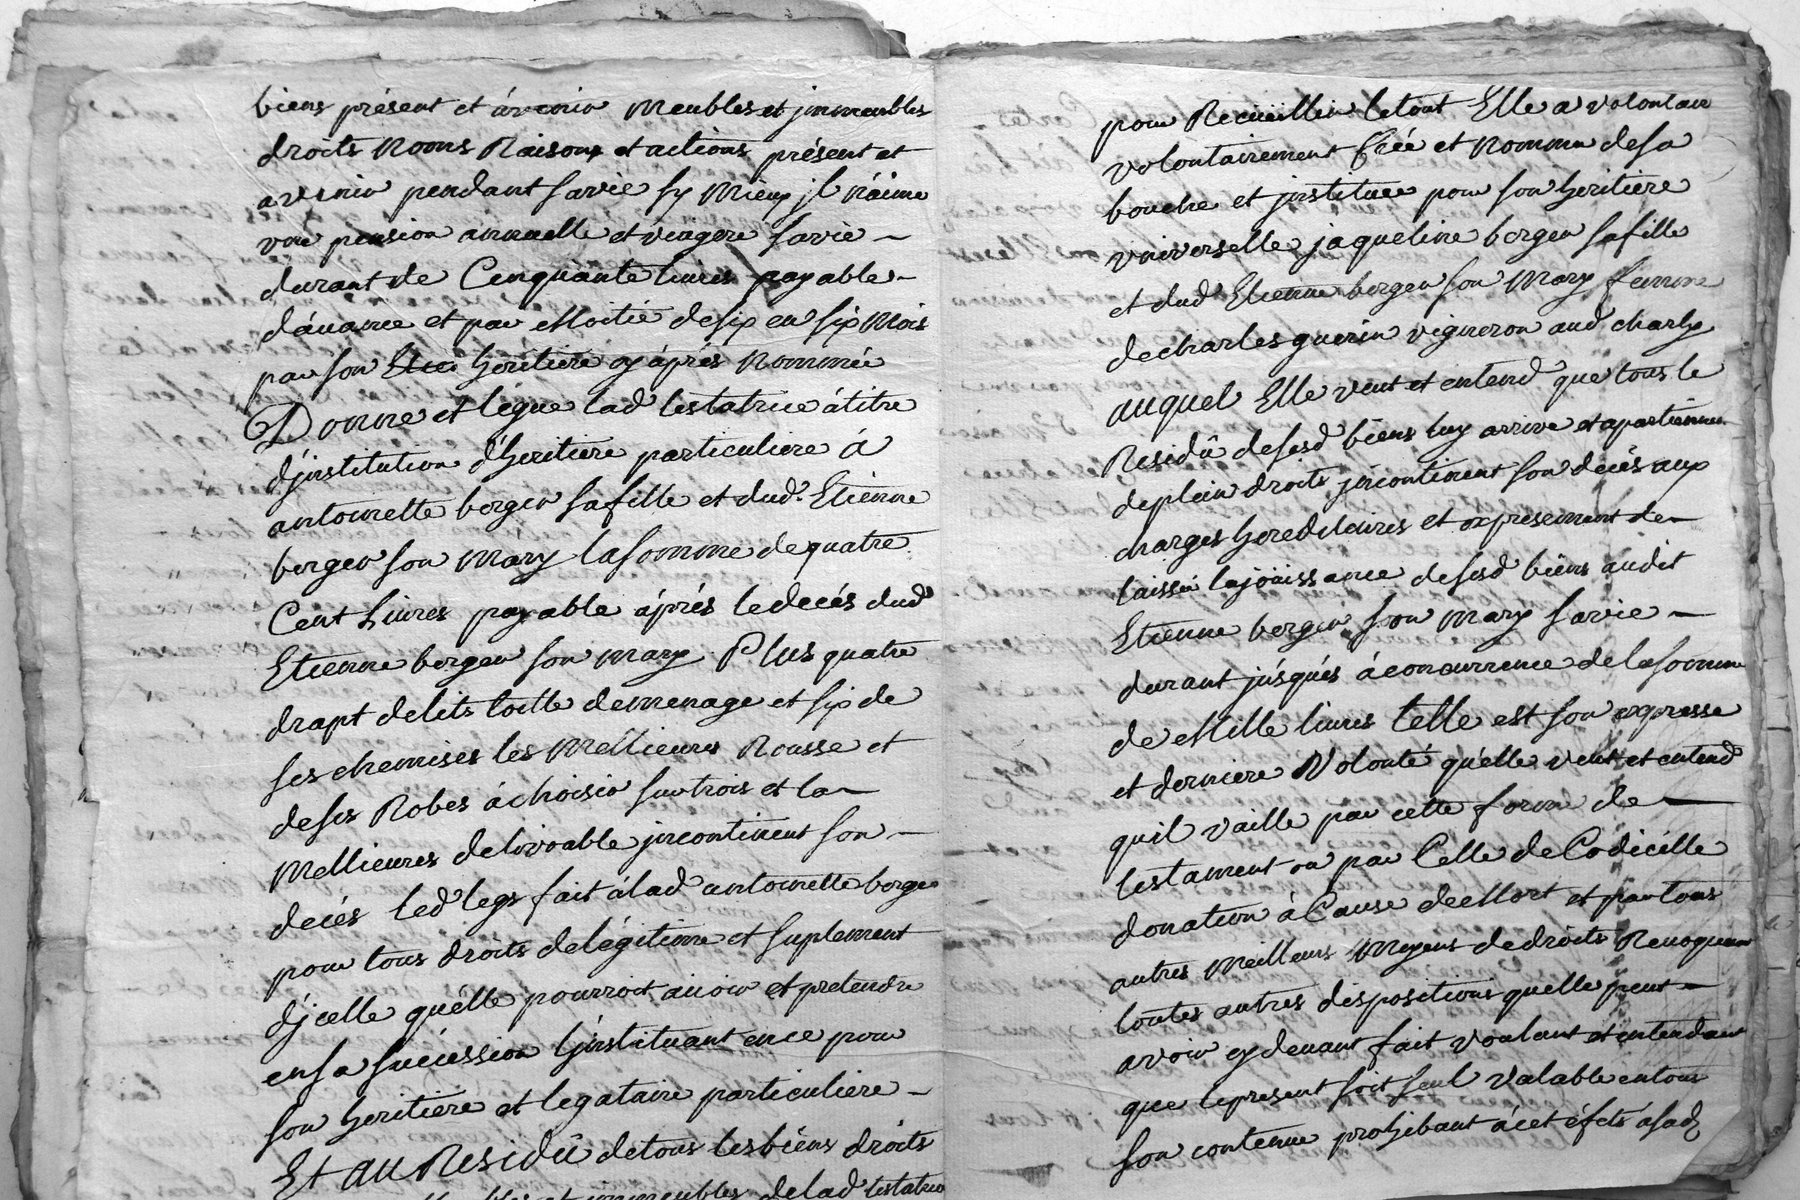 biens présent et àvenir Meubles et jmmeubles
droits Noms Raisons et actions présent et
avenir pendant sa vie sy Mieux jl n'aime
vne pension annuelle et viagere sa vie
durant de Cenquante livres payable
d'auance et par Moitié de six en six Mois
par son heritiere cy áprés Nommée
Donne et légue lad testatrice á titre
d'jnstitution d'heritiere particuliere á
antoinette berger sa fille et dud. Etienne
berger son Mary la somme de quatre
Cent Livres payable áprés le decés dud
Etienne berger son Mary Plus quatre
drapt de lits toille de menage et six de
ses chemises les Mellieures Rousse et
de ses Robes á choisir sur trois et la
Mellieures delivrable jncontinent son
decés led legs fait á lad antoinette berger
pour tous droits de légitime et suplement
d'jcelle qu'élle pourroit auoir et pretendre
en sa succession L'jnstituant en ce pour
son heritiere et legataire particuliere
Et au Residû de tous les biens droits
et jmmeubles de lad testatrice
pour Recüeillir le tout Elle a volontair
volontairement Créé et Nommé de sa
bouche et jnstituée pour son heritiere
vniverselle jaqueline berger sa fille
et dud Etienne berger son Mary femme
de charles guerin vigneron aud charly
auquel Elle veut et entend que tous le
Residû de sesd biens luy arrive et apartienne
de plein droits jncontinent son decés aux
charges hereditaires et expresement de
laisser la joüissance de sesd biens audit
Etienne berger son Mary sa vie
durant júsqués á concurrence de la somme
de Mille livres telle est son expresse
et derniere Volonté qu'élle veut et entend
quil vaille par cette forme de
testament ou par Celle de Codicille
donation á Cause de Mort et par tous
autres Meilleurs Moyens de droits Revoquant
toutes autres dispositions quelle peut
avoir cy devant fait voulant et entendant
que le present soit seul valable en tout
son contenu prohibant á cet éfets á sad